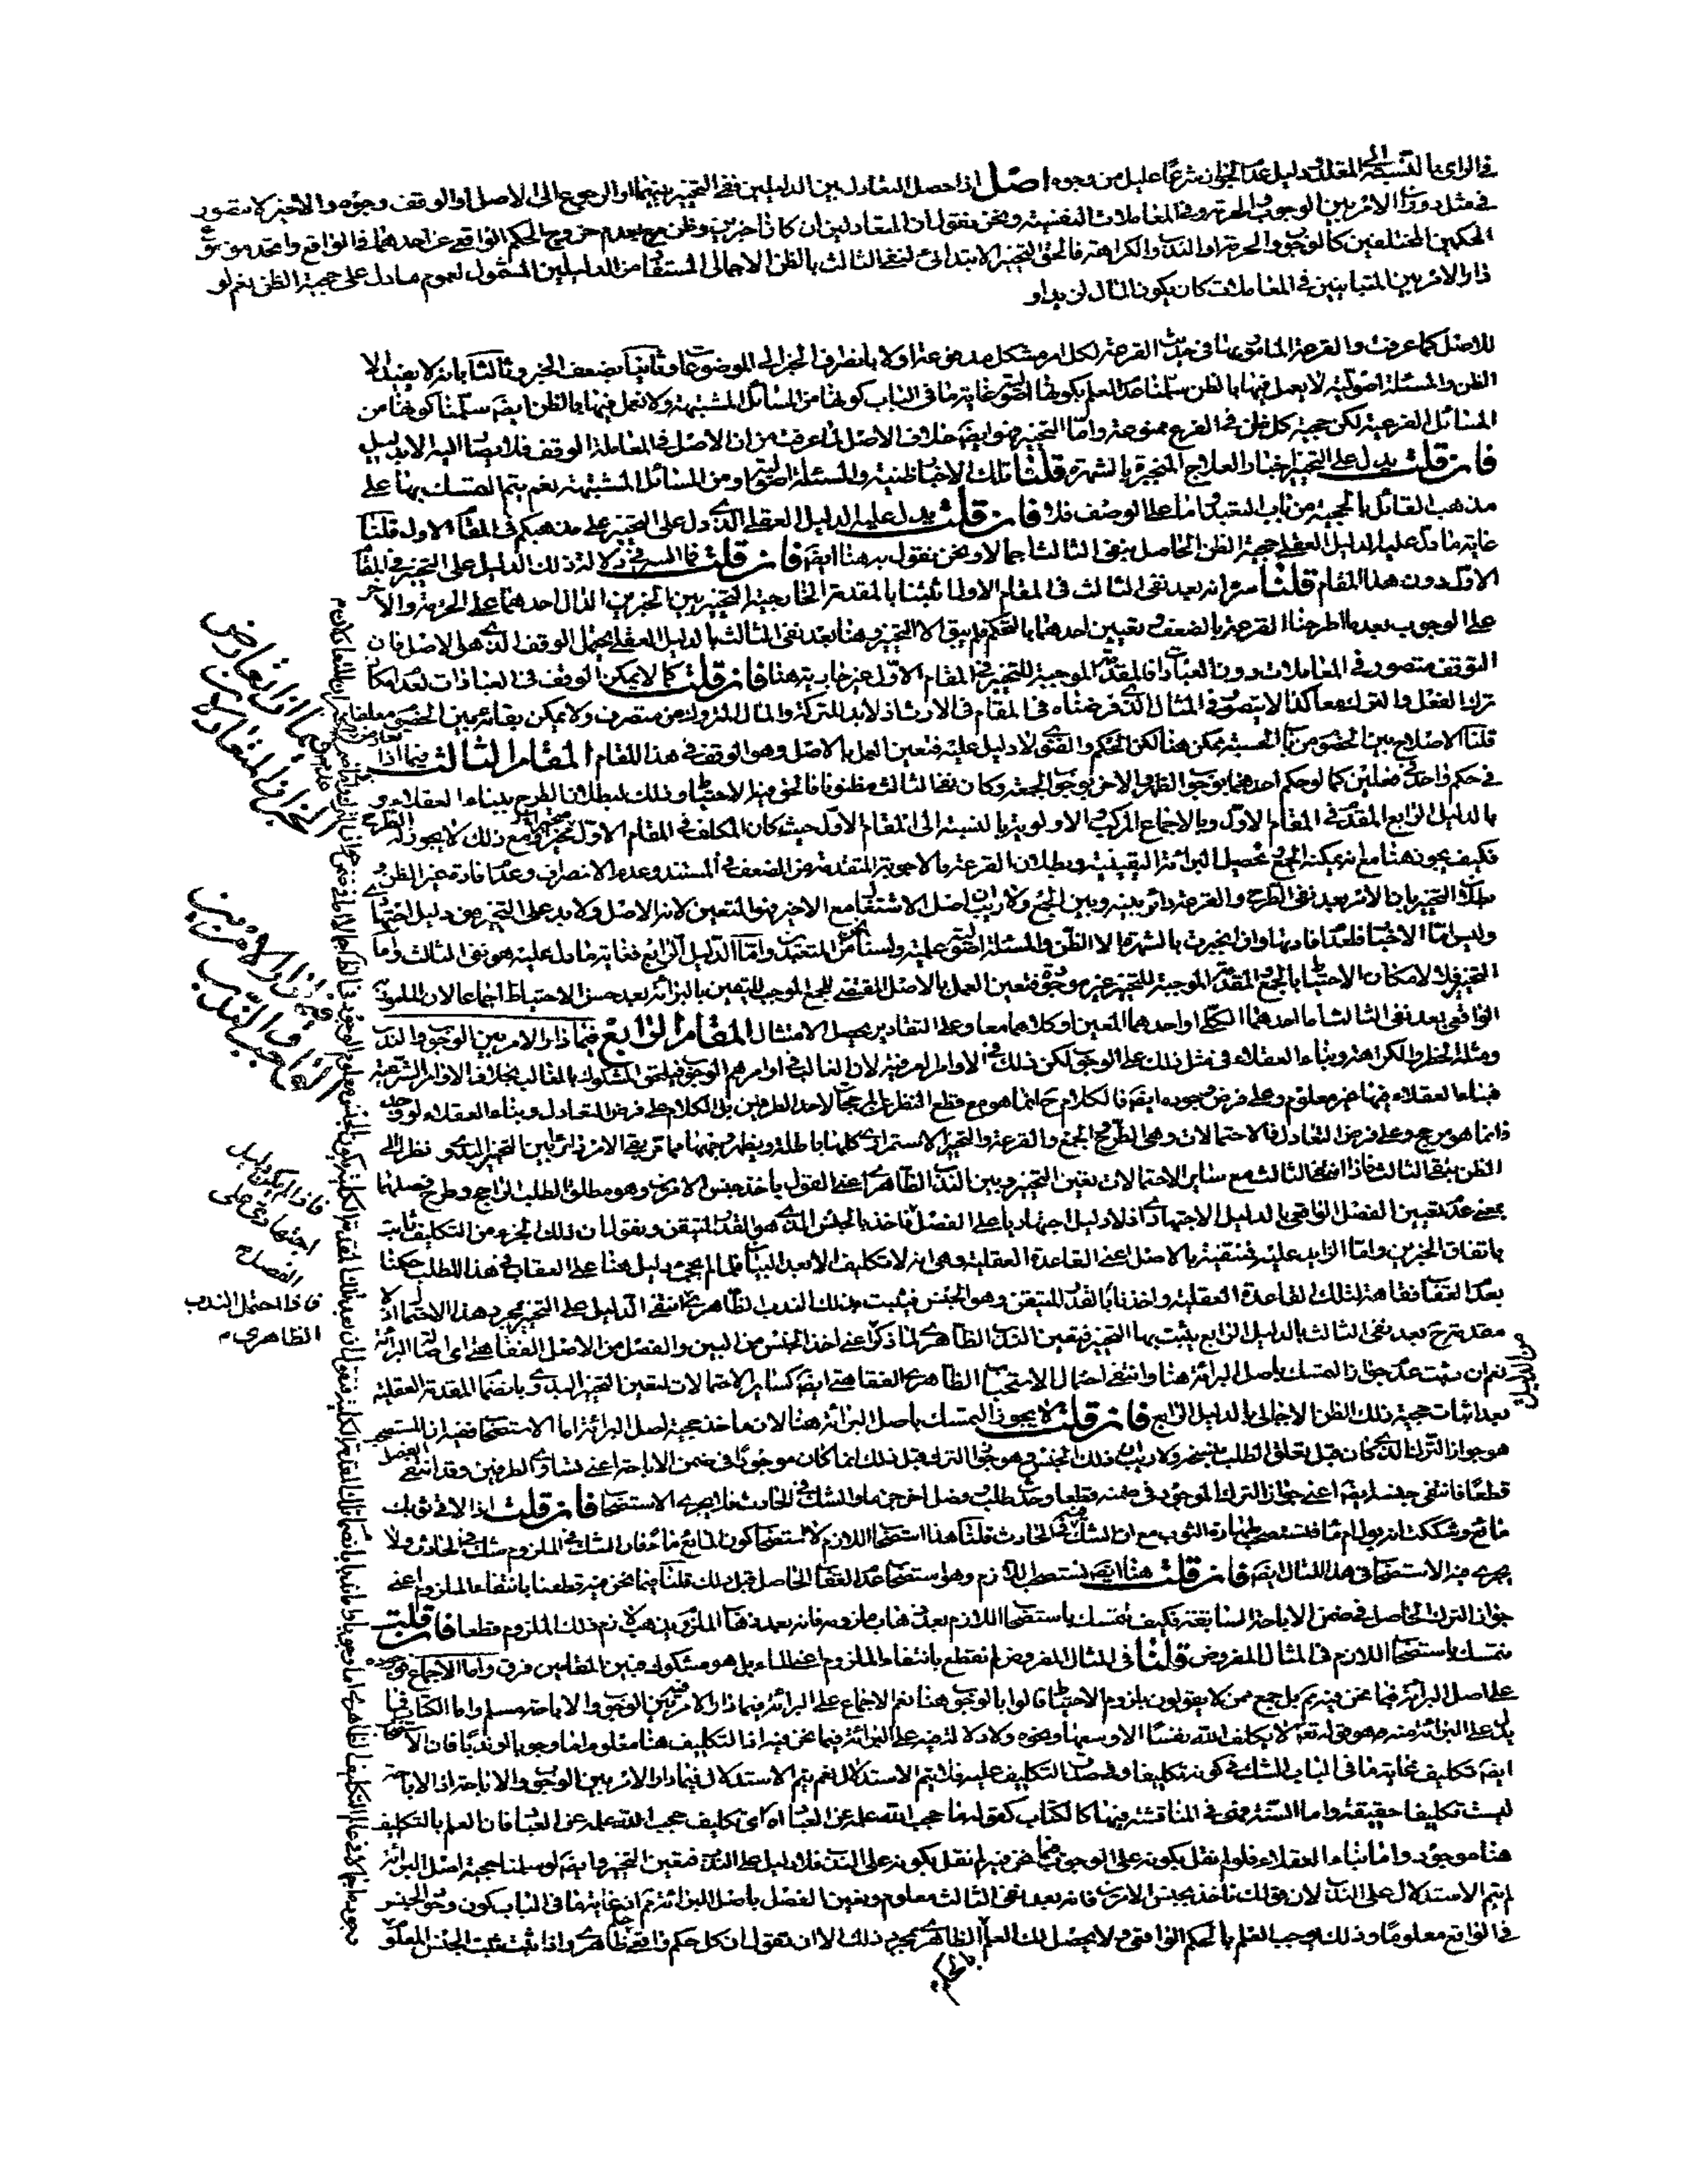 في الراي بالنسبة الى المقلد دليل عدم الجواز شرعا عليل من وجوه اصل اذا حصل التعادل بين الدليلين ففي التخيير بينهما او الرجوع الى الاصل او الوقف وجوه والاخير لا يتصور
في مثل دوران الامر بين الوجوب والحرمة وفي المعاملات النفسية ونحن نقول ان المتعادلين ان كانا خبرين وظن بعدم خروج الحكم الواقعي عن احدهما في الواقع واتحد مورد
الحكمين المختلفين كالوجوب والحرمة او الندب والكراهة فالحق التخيير الابتدائي لنفي الثالث بالظن الاجمالي المستفاد من الدليلين المشمول لعموم ما دل على حجية الظن نعم لو
دار الامر بين المتباينين في المعاملات كان يكون المال لزيد او
للاصل كما عرفت والقرعة المأمور بها في حديث القرعة لكل امر مشكل مدفوعة اولا بانصراف الخبر الى الموضوعات وثانيا بضعف الخبر وثالثا بانه لا يفيد الا
الظن والمسئلة اصولية لا يعمل فيها بالظن سلمنا عدم العلم بكونها اصولية غاية ما في الباب كونها من المسائل المشتبهة ولا نعمل فيها بالظن ايضا سلمنا كونها من
المسائل الفرعية لكن حجية كل ظن في الفرع ممنوعة واما التخيير فهو ايضا خلاف الاصل لما عرفت من ان الاصل في المعاملة الوقف فلا يصار اليه الا بدليل
فان قلت يدل على التخيير اخبار العلاج المنجبرة بالشهرة قلنا تلك الاخبار ظنية والمسئلة اصولية او من المسائل المشتبهة نعم يتم التمسك بها على
مذهب القائل بالحجية من باب التعبد اما على الوصف فلا فان قلت يدل عليه الدليل العقلي الذي دل على التخيير على مذهبكم في المقام الاول قلنا
غاية ما دل عليه الدليل العقلي حجية الظن الحاصل بنفي الثالث اجمالا ونحن نقول به هنا ايضا فان قلت فما السر في دلالة ذلك الدليل على التخيير في المقام
الاول دون هذا المقام قلنا سره انه بعد نفي الثالث في المقام الاول اثبتنا بالمقدمة الخارجية التخيير بين الخبرين الدال احدهما على الحرمة والاخر
على الوجوب بعد ما اطرحنا القرعة بالضعف وتعيين احدهما بالتحكم فلم يبق الا التخيير وهنا بعد نفي الثالث بالدليل العقلي يحتمل الوقف الذي هو الاصل فان
التوقف متصور في المعاملات دون العبادات فالمقدمة الموجبة للتخيير في المقام الاول غير جارية هنا فان قلت كما لا يمكن الوقف في العبادات لعدم امكان
ترك الفعل والترك معا كذا لا يتصور في المثال الذي فرضناه في المقام في الارث اذ لابد للتركة والمال المتروك من متصرف ولا يمكن بقائه بين الخصمين معلقا
قلنا الاصلاح بين الخصمين من باب الحسبة ممكن هنا لكن الحكم والفتوى لا دليل عليه فتعين العمل بالاصل وهو الوقف في هذا المقام المقام الثالث فيما اذا
في حكم واحد في فعلين كما لو حكم احدهما بوجوب الظهر والاخر بوجوب الجمعة وكان نفي الثالث مظنونا فالحق فيه الاحتياط وذلك لبطلان الطرح ببناء العقلاء و
بالدليل الرابع المقدم في المقام الاول وبالاجماع المركب والاولوية بالنسبة الى المقام الاول حيث كان المكلف في المقام الاول مع ذلك لا يجوز له
فكيف يجوز هنا مع انه يمكنه الجمع تحصيل البرائة اليقينية وبطلان القرعة بالاجوبة المتقدمة من الضعف في المستند وعدم الانصراف وعدم افادة غير الظن
بطلان التخيير بان الامر بعد نفي الطرح والقرعة دائر بينه وبين الجمع ولا ريب ان اصل الاشتغال مع الاخير فهو المتعين لانه الاصل ولابد على التخيير من دليل اجتهادي
وليس اما الاخبار فلعدم افادتها وان انجبرت بالشهرة الا الظن والمسئلة اصولية علمية ولسنا من المتعبدين واما الدليل الرابع فغاية ما دل عليه هو نفي الثالث واما
التخيير فلا لامكان الاحتياط بالجمع المقدمة الموجبة للتخيير غير موجودة فتعين العمل بالاصل المقتضي للجمع الموجب لليقين بالبرائة بعد حسن الاحتياط اجماعا لان المامور به
الواقعي بعد نفي الثالث اما احدهما الكلي او احدهما المعين او كلاهما معا وعلى التقادير يحصل الامتثال المقام الرابع فيما دار الامر بين الوجوب والندب
ومثله الحظر والكراهة وبناء العقلاء في مثل ذلك على الوجوب لكن ذلك في الاوامر العرفية لان الغالب في اوامرهم الوجوب فيلحق المشكوك بالغالب بخلاف الاوامر الشرعية
فبناء العقلاء فيها غير معلوم وعلى فرض وجوده ايضا فالكلام ح انما هو مع قطع النظر عن المرجح لاحد الطرفين بل الكلام على فرض التعادل وبناء العقلاء لو وجد
فانما هو مرجح وعلى فرض التعادل فالاحتمالات وهي الطرح والجمع والقرعة والتخيير الاستمراري كلها باطلة ويظهر وجهها مما مر بقي الامر دائرا بين التخيير البدوي نظرا الى
الظن بنفي الثالث فاذا انتفى الثالث مع سائر الاحتمالات تعين التخيير وبين الندب الظاهري اعني القول باخذ جنس الامرين وهو مطلق الطلب الراجح وطرح فصلهما
بمعنى عدم تعيين الفصل الواقعي بالدليل الاجتهادي اذ لا دليل اجتهاديا على الفصل فاخذ بالجنس الذي هو القدر المتيقن ونقول ان ذلك الجزء من التكليف ثابت
باتفاق الخبرين واما الزايد عليه فننفيه بالاصل اعني القاعدة العقلية وهي انه لا تكليف الا بعد البيان فلما لم يجئ دليل هنا على العقاب في هذا الطلب حكمنا
بعدم العقاب فقاهة لتلك القاعدة العقلية واخذنا بالقدر المتيقن وهو الجنس فيثبت بذلك الندب الظاهري فانتفى الدليل على التخيير بمجرد هذا الاحتمال اذ لا
مقدمة ح بعد نفي الثالث بالدليل الرابع يثبت بها التخيير فيتعين الندب الظاهري لما ذكرنا اعني اخذ الجنس من البين والفصل من الاصل الفقاهتي اي اصالة البرائة
نعم ان ثبت عدم جواز التمسك باصل البرائة هنا وانتفى احتمال الاستحباب الظاهري الفقاهتي ايضا كساير الاحتمالات لتعين التخيير البدوي بانضمام المقدمة العقلية
بعد اثبات حجية ذلك الظن الاجمالي بالدليل الرابع فان قلت لا يجوز التمسك باصل البرائة هنا لان ماخذ حجية اصل البرائة اما الاستصحاب ففيه ان المستصحب
هو جواز الترك الذي كان قبل تعلق الطلب بشيء ولا ريب ان ذلك الجنس وهو جواز الترك قبل ذلك انما كان موجودا في ضمن الاباحة اعني تساوي الطرفين وقد انتفى
قطعا فانتفى جنسه ايضا اعني جواز الترك الموجود في ضمنه قطعا وحدث طلب وفصل اخر جزما والشك في الحادث فلا يجري الاستصحاب فان قلت اذا لاقى ثوبك
مائع وشككت انه بول ام ماء فتستصحب طهارة الثوب مع ان الشك في الحادث قلنا هذا استصحاب اللازم لا استصحاب كون المائع ماء فان الشك في الملزوم شك في الحادث ولا
يجري فيه الاستصحاب في هذا المثال ايضا فان قلت هنا ايضا نستصحب اللازم وهو استصحاب عدم العقاب الحاصل قبل ذلك قلنا فيما نحن فيه قطعنا بانتفاء الملزوم اعني
جواز الترك الحاصل في ضمن الاباحة السابقة فكيف نتمسك باستصحاب اللازم بعد ذهاب ملزومه فانه بعد ذهاب الملزوم يذهب لازم ذلك الملزوم قطعا فان قلت
نتمسك باستصحاب اللازم في المثال المفروض قلنا في المثال المفروض لم نقطع بانتفاء الملزوم اعني الماء بل هو مشكوك فبين المقامين فرق واما الاجماع فوجوده
على اصل البرائة فيما نحن فيه ثم بل جمع ممن لا يقولون بلزوم الاحتياط قالوا بالوجوب هنا نعم الاجماع على البرائة فيما دار الامر فيه بين الوجوب والاباحة مسلم واما الكتاب فما
يدل على البرائة منه هو قوله تعالى لا يكلف الله نفسا الا وسعها ونحوه ولا دلالة فيه على البرائة فيما نحن فيه اذ التكليف هنا معلوم اما وجوبا او ندبا فان الاستحباب
ايضا تكليف غاية ما في الباب الشك في كونه تكليفا التكليف عليه فلا يتم الاستدلال نعم يتم الاستدلال فيما دار الامر بين الوجوب والاباحة اذ الاباحة
ليست تكليفا حقيقة واما السنة فهي في المناقشة فيها كالكتاب كقوله ما حجب الله علمه عن العباد اه اي تكليف حجب الله علمه عن العباد فان العلم بالتكليف
هنا موجود واما بناء العقلاء فلو لم نقل بكونه على الوجوب فيما نحن فيه لم نقل بكونه على الندب فلا دليل على الندب فتعين التخيير وايضا لو سلمنا حجية اصل البرائة
لم يتم الاستدلال على الندب لان قولك ناخذ بجنس الامرين فانه بعد نفي الثالث معلوم ونعين الفصل باصل البرائة ثم اذ غاية ما في الباب كون وجود الجنس
في الواقع معلوما وذلك يوجب العلم بالحكم الواقعي ولا يحصل لك العلم الظاهري بمجرد ذلك الا ان تقول ان كل حكم واقعي ظاهري واذا ثبت ثبت الجنس المعلوم
فيما اذا تعارض
الخبران المتعادلان
فيما دار الامر بين
الوجوب والندب
فاذا لم يكن دليل
اجتهادي على
الفصل ح
فاذا احتمل الندب
الظاهري م